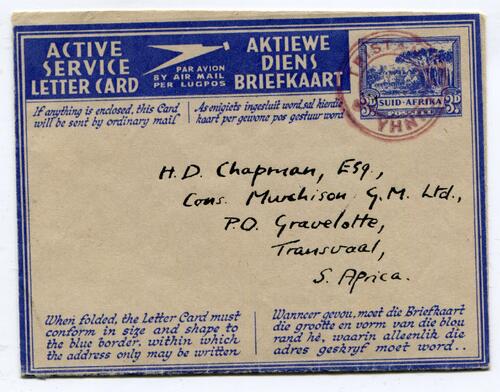 ACTIVE
SERVICE
LETTER CARD
PAR AVION
BY AIR MAIL
PER LUGPOS
AKTIEWE
DIENS
BRIEFKAART
If anything is enclosed, this Card
will be sent by ordinary mail
As enigiets ingesluit word, sal hierdie
kaart per gewone pos gestuur word
3D SUID-AFRIKA 3D
H.D. Chapman, Esq.,
Cons. Murchison G.M. Ltd.,
P.O. Gravelotte,
Transvaal,
S. Africa.
When folded, the Letter Card must
conform in size and shape to
the blue border, within which
the address only may be written
Wanneer gevou, moet die Briefkaart
die grootte en vorm van die blou
rand hê, waarin alleenlik die
adres geskryf moet word..